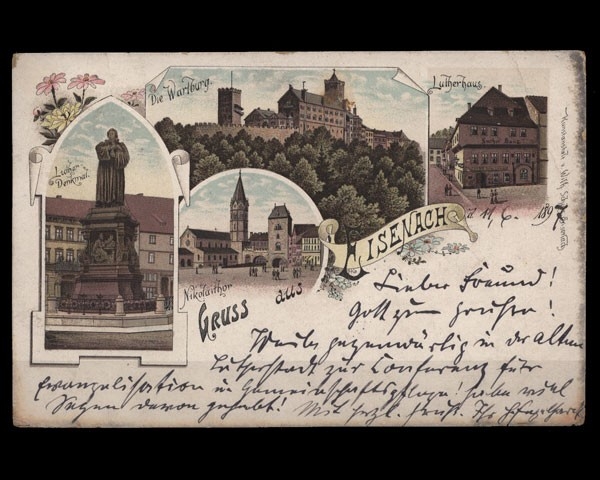 Die Wartburg.
Lutherhaus.
Luther-
Denkmal.
Nikolaithor
Gruss
aus
Eisenach
11/6. 1897
Lieber Freund!
Gott zum Gruße!
Weile gegenwärtig in der alten
Lutherstadt zur Conferenz für
Evangelisation u. Gemeinschaftspflege! habe viel
Segen davon gehabt! Mit herzl. Gruß. Ihr